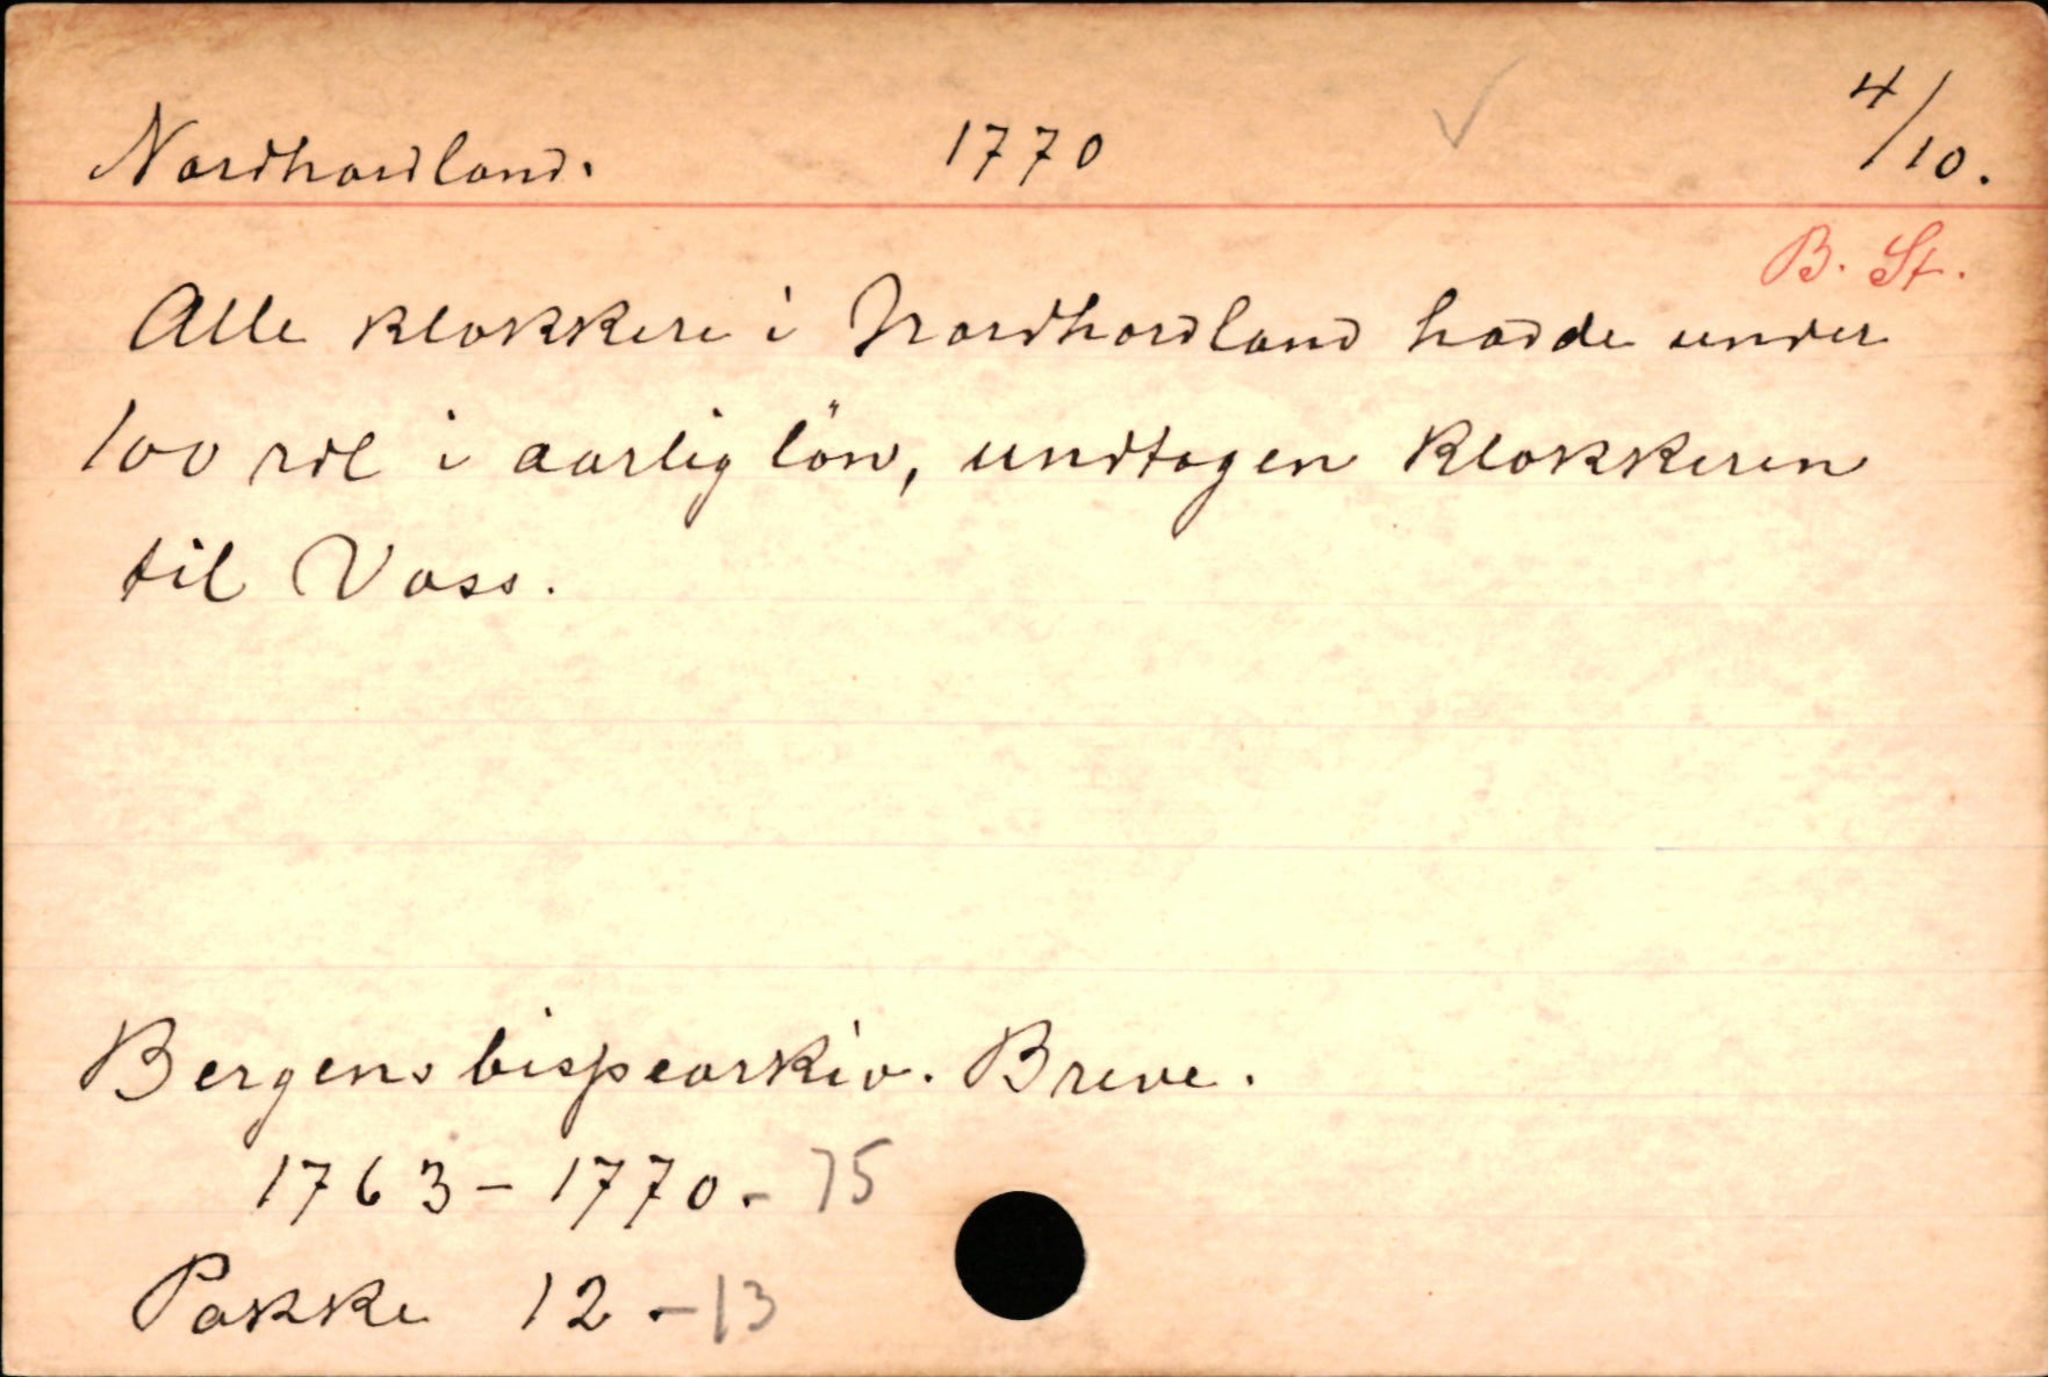 Nordhordland. 1770 4/10.
B. St.
Alle klokkere i Nordhordland hadde under
100 rdl i aarlig lön, undtagen klokkeren
til Voss.
Bergens bispearkiv. Breve.
1763-1770.-75
Pakke 12.-13